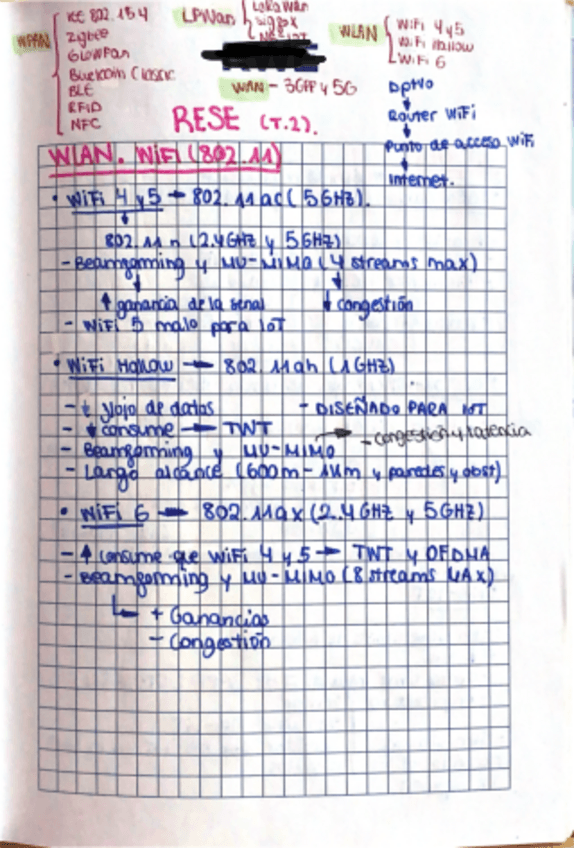 WPAN
IEE 802.15.4
Zigbee
6LowPan
Bluetooth Classic
BLE
RFID
NFC
LPWan
LoRaWan
Sigfox
WLAN
WiFi 4 y 5
WiFi Hallow
WiFi 6
WAN - 3GPP y 5G
RESE (T.2).
Dptvo
Router WiFi
Punto de acceso WiFi
Internet.
WLAN. WiFi (802.11)
• WiFi 4 y 5 → 802.11ac (5GHz).
↓
802.11n (2.4GHz y 5GHz)
- Beamforming y MU-MIMO (4 streams max)
↑ ganancia de la señal ↓ congestión
- WiFi 5 malo para IoT
• WiFi Hallow → 802.11ah (1GHz)
- ↓ flojo de datos - DISEÑADO PARA IoT
- ↓ consume → TWT
- Beamforming y MU-MIMO → - congestión y latencia
- Largo alcance (600m - 1Km y paredes y obst)
• WiFi 6 → 802.11ax (2.4GHz y 5GHz)
- ↑ consume que WiFi 4 y 5 → TWT y OFDMA
- Beamforming y MU-MIMO (8 streams MAx)
+ Ganancias
- Congestión